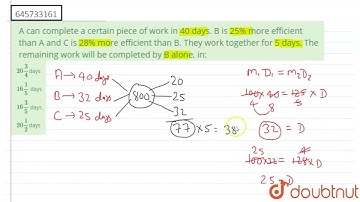 645733161
A can complete a certain piece of work in 40 days. B is 25% more efficient
than A and C is 28% more efficient than B. They work together for 5 days. The
remaining work will be completed by B alone, in :
20 3/4 days
16 1/5 days
16 3/5 days
20 1/2 days
A → 40 days
B → 32 days
C → 25 days
800
20
25
32
77 × 5 = 38
M₁D₁ = M₂D₂
100 × 40 = 125 × D
4 8 5
32 = D
25 4
100×32 = 128×D
25 = D
doubtnut